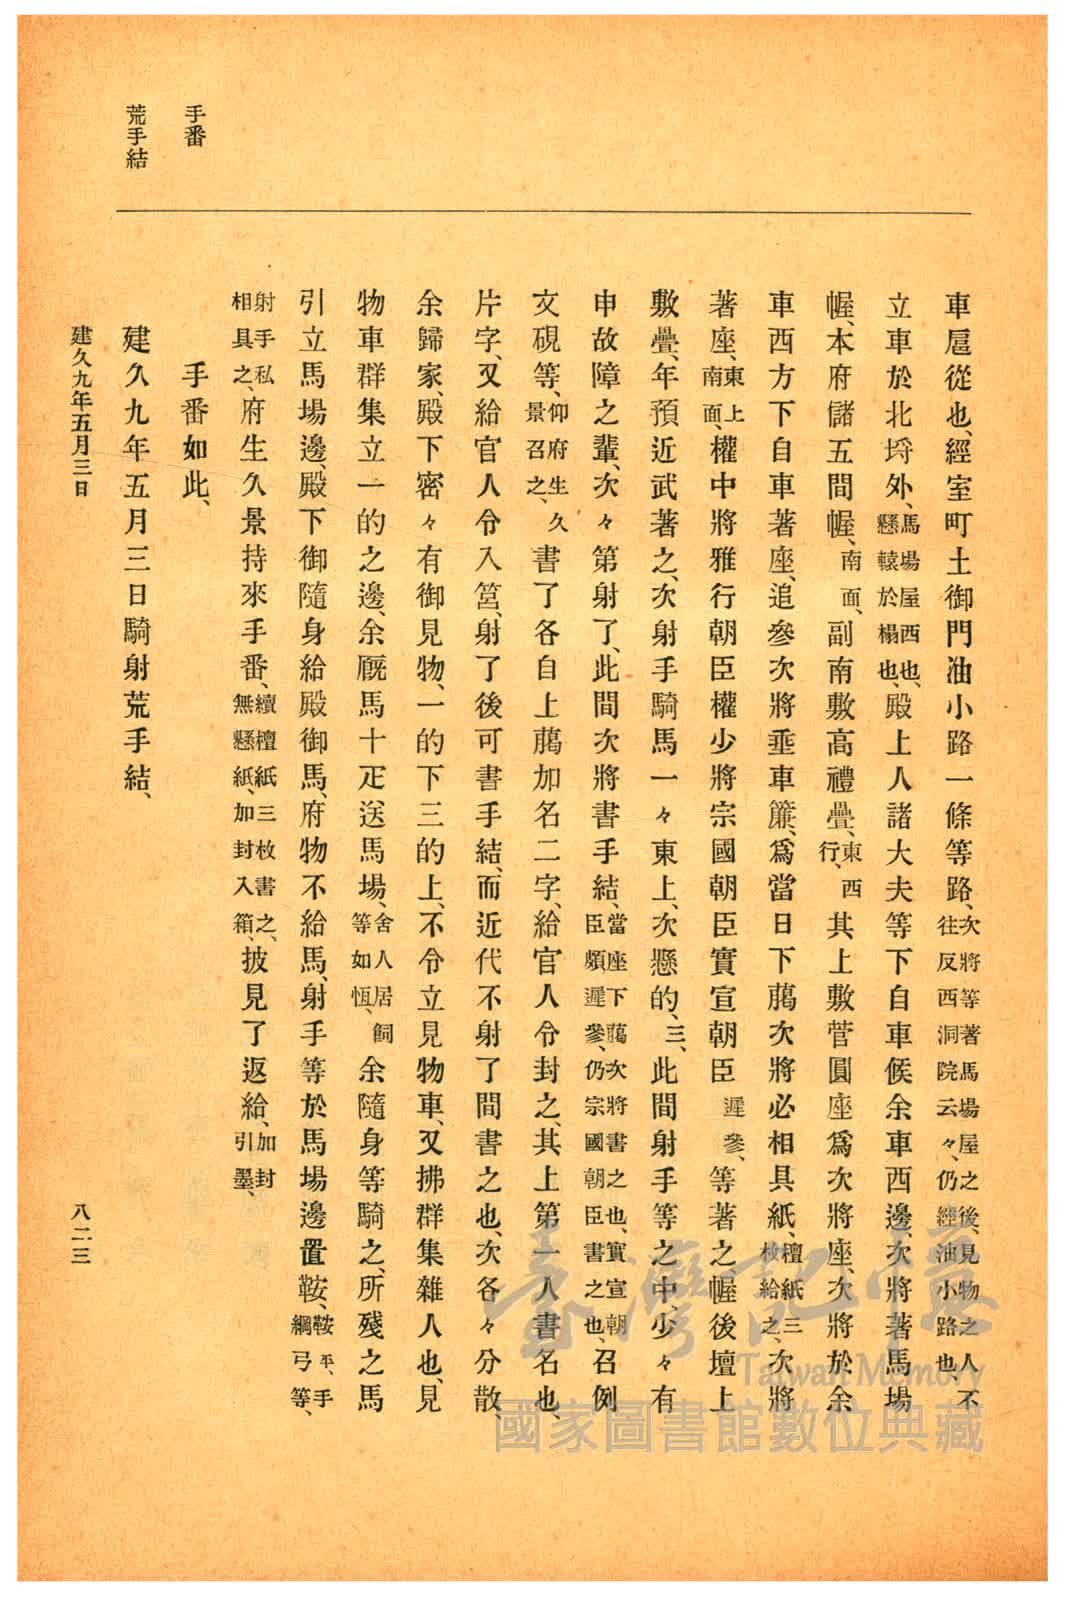 手番
荒手結
車扈從也、經室町土御門油小路一條等路、次將等著馬場屋之後、見物之人不往反西洞院云々、仍經油小路也、
立車於北埒外、馬場屋西也、懸轅於榻也、殿上人諸大夫等下自車候余車西邊、次將著馬場
幄、本府儲五間幄、南面、副南敷高禮疊、東西行、其上敷菅圓座爲次將座、次將於余
車西方下自車著座、追參次將垂車簾、爲當日下﨟次將必相具紙、檀紙三枚給之、次將
著座、東上南面、權中將雅行朝臣權少將宗國朝臣實宣朝臣遲參、等著之、幄後壇上
敷疊、年預近武著之、次射手騎馬一々東上、次懸的、三、此間射手等之中、少々有
申故障之輩、次々第射了、此間次將書手結、當座下﨟次將書之也、實宣朝臣頗遲參、仍宗國朝臣書之也、召例
文硯等、仰府生久景召之、書了各自上﨟加名二字、給官人令封之、其上第一人書名也、
片字、又給官人令入筥、射了後可書手結、而近代不射了間書之也、次各々分散、
余歸家、殿下密々有御見物、一的下三的上、不令立見物車、又拂群集雜人也、見
物車群集立一的之邊、余厩馬十疋送馬場、舍人居飼等如恆、余隨身等騎之、所殘之馬
引立馬場邊、殿下御隨身給殿御馬、府物不給馬、射手等於馬場邊置鞍、鞍平、手綱弓等、
射手私相具之、府生久景持來手番、續檀紙三枚書之、無懸紙、加封入箱、披見了返給、加封引墨、
手番如此、
建久九年五月三日騎射荒手結、
建久九年五月三日
八二三
臺灣記憶
Taiwan Memory
國家圖書館數位典藏